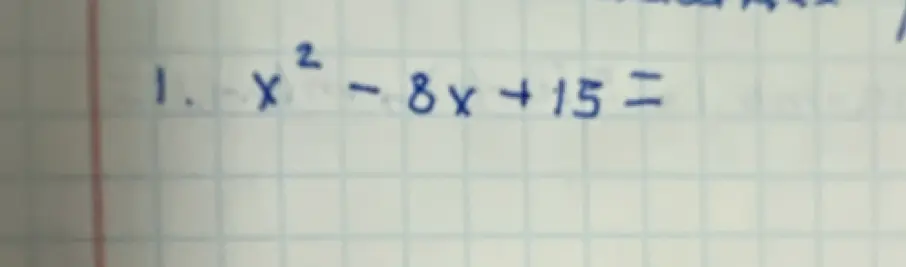 1. x² - 8x + 15 =